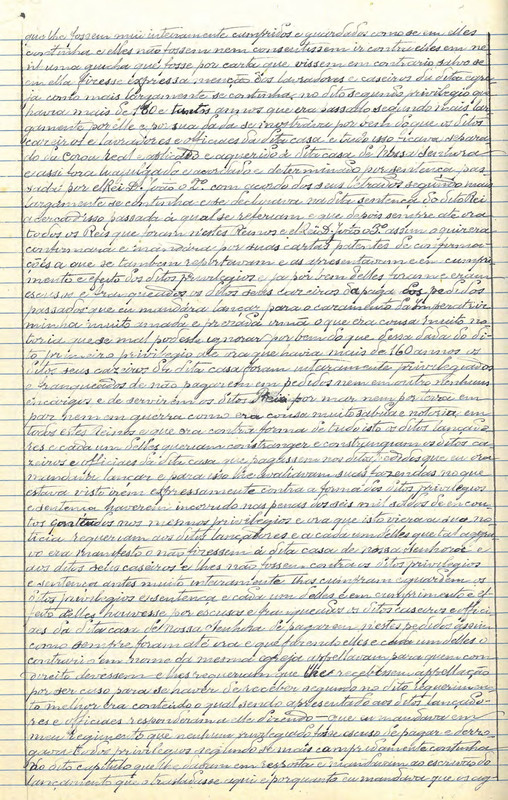 que lhe fossem mui inteiramente cumpridos e guardados como se em elles
continha e elles não fossem nem consentissem ir contra elles em ne
nhuma que fosse por carta que vissem em contrario salvo se
em ella fizesse expressa menção dos lavradores e caseiros da dita egre
ja como mais largamente se continha no dito segundo privilegio que
havia mais de 160 e tantos annos que era passado segundo mais lar
gamente por elle e por sua dada se mostrava por bem do que os ditos
caseiros e lavradores e officiaes da dita casa e tudo isso ficava separa
do da coroa real e adquirido á dita casa
e assi fora julgado e acordado e determinado por sentença pas
sada por el Rei D. João o 2º com acordo dos seus letrados segundo mais
largamente se continha e se declarava na dita sentença do dito Rei
acerca disso passada á qual se referiam e que depois sempre até ora
todos os Reis que foram nestes Reinos e el Rei D. João o 3º assim o quizera
confirmara e mandara por suas cartas patentes de confirma
ções a que se tambem reportavam e as apresentavam e em cumpri
mento e effeito dos ditos privilegios e já por bem delles foram e eram
escusos e franqueados os ditos seus caseiros da paga dos pedidos
passados que eu mandára lançar para o casamento da Imperatriz
minha muito amada e prezada irmã o que era cousa muito no
toria que se mal podesse ignorar por bem do que dessa dada do di
to primeiro privilegio até ora que havia mais de 160 annos os
ditos seus caseiros da dita casa foram inteiramente privilegiados
e franqueados de não pagarem em pedidos nem em outro nenhuns
encargos e de servirem os ditos Reis por mar nem por terra em
paz nem em guerra como era cousa muito sabida e notoria em
todos estes Reinos e que ora contra forma de tudo isto os ditos lançado
res e cada um delles queriam constranger e constrangiam os ditos ca
seiros e officiaes da dita casa que pagassem nos ditos pedidos que eu ora
mandára lançar e para isso lhe avaliavam suas fazendas no que
estava visto irem expressamente contra a forma dos ditos privilegios
e sentença e haverem incorrido nas penas dos seis mil soldos de encou
tos contendos nos mesmos privilegios e ora que isto viera a sua no
ticia requeriam aos ditos lançadores e a cada um delles que tal aggra
vo era manifesto o não fizessem á dita casa de nossa senhora e
aos ditos seus caseiros e lhes não fossem contra os ditos privilegios
e sentença antes muito inteiramente lhos cumpram e guardem os
ditos privilegios e sentença e cada um delles e em cumprimento e ef
feito delles houvesse por escusos e franqueados os ditos caseiros e offici
aes da dita casa de Nossa Senhora de pagarem nestes pedidos assim
como sempre foram até ora e que fazendo elles e cada um delles o
contrario em nome da mesma egreja appellavam para quem com
direito devessem e lhes requeriam que lhe recebessem appellação
por ser caso para se haver de receber segundo no dito requerimen
to melhor era contendo o qual sendo apresentado aos ditos lançado
res e officiaes responderam a elle dizendo que eu mandava em
meu regimento que nenhum privilegiado fosse escuso de pagar e derro
gava todos privilegios segundo se mais cumpridamente continha
no dito capitulo que lhe davam em resposta e mandavam ao escrivão do
lançamento que o trasladasse aqui e porquanto eu mandava que os ag